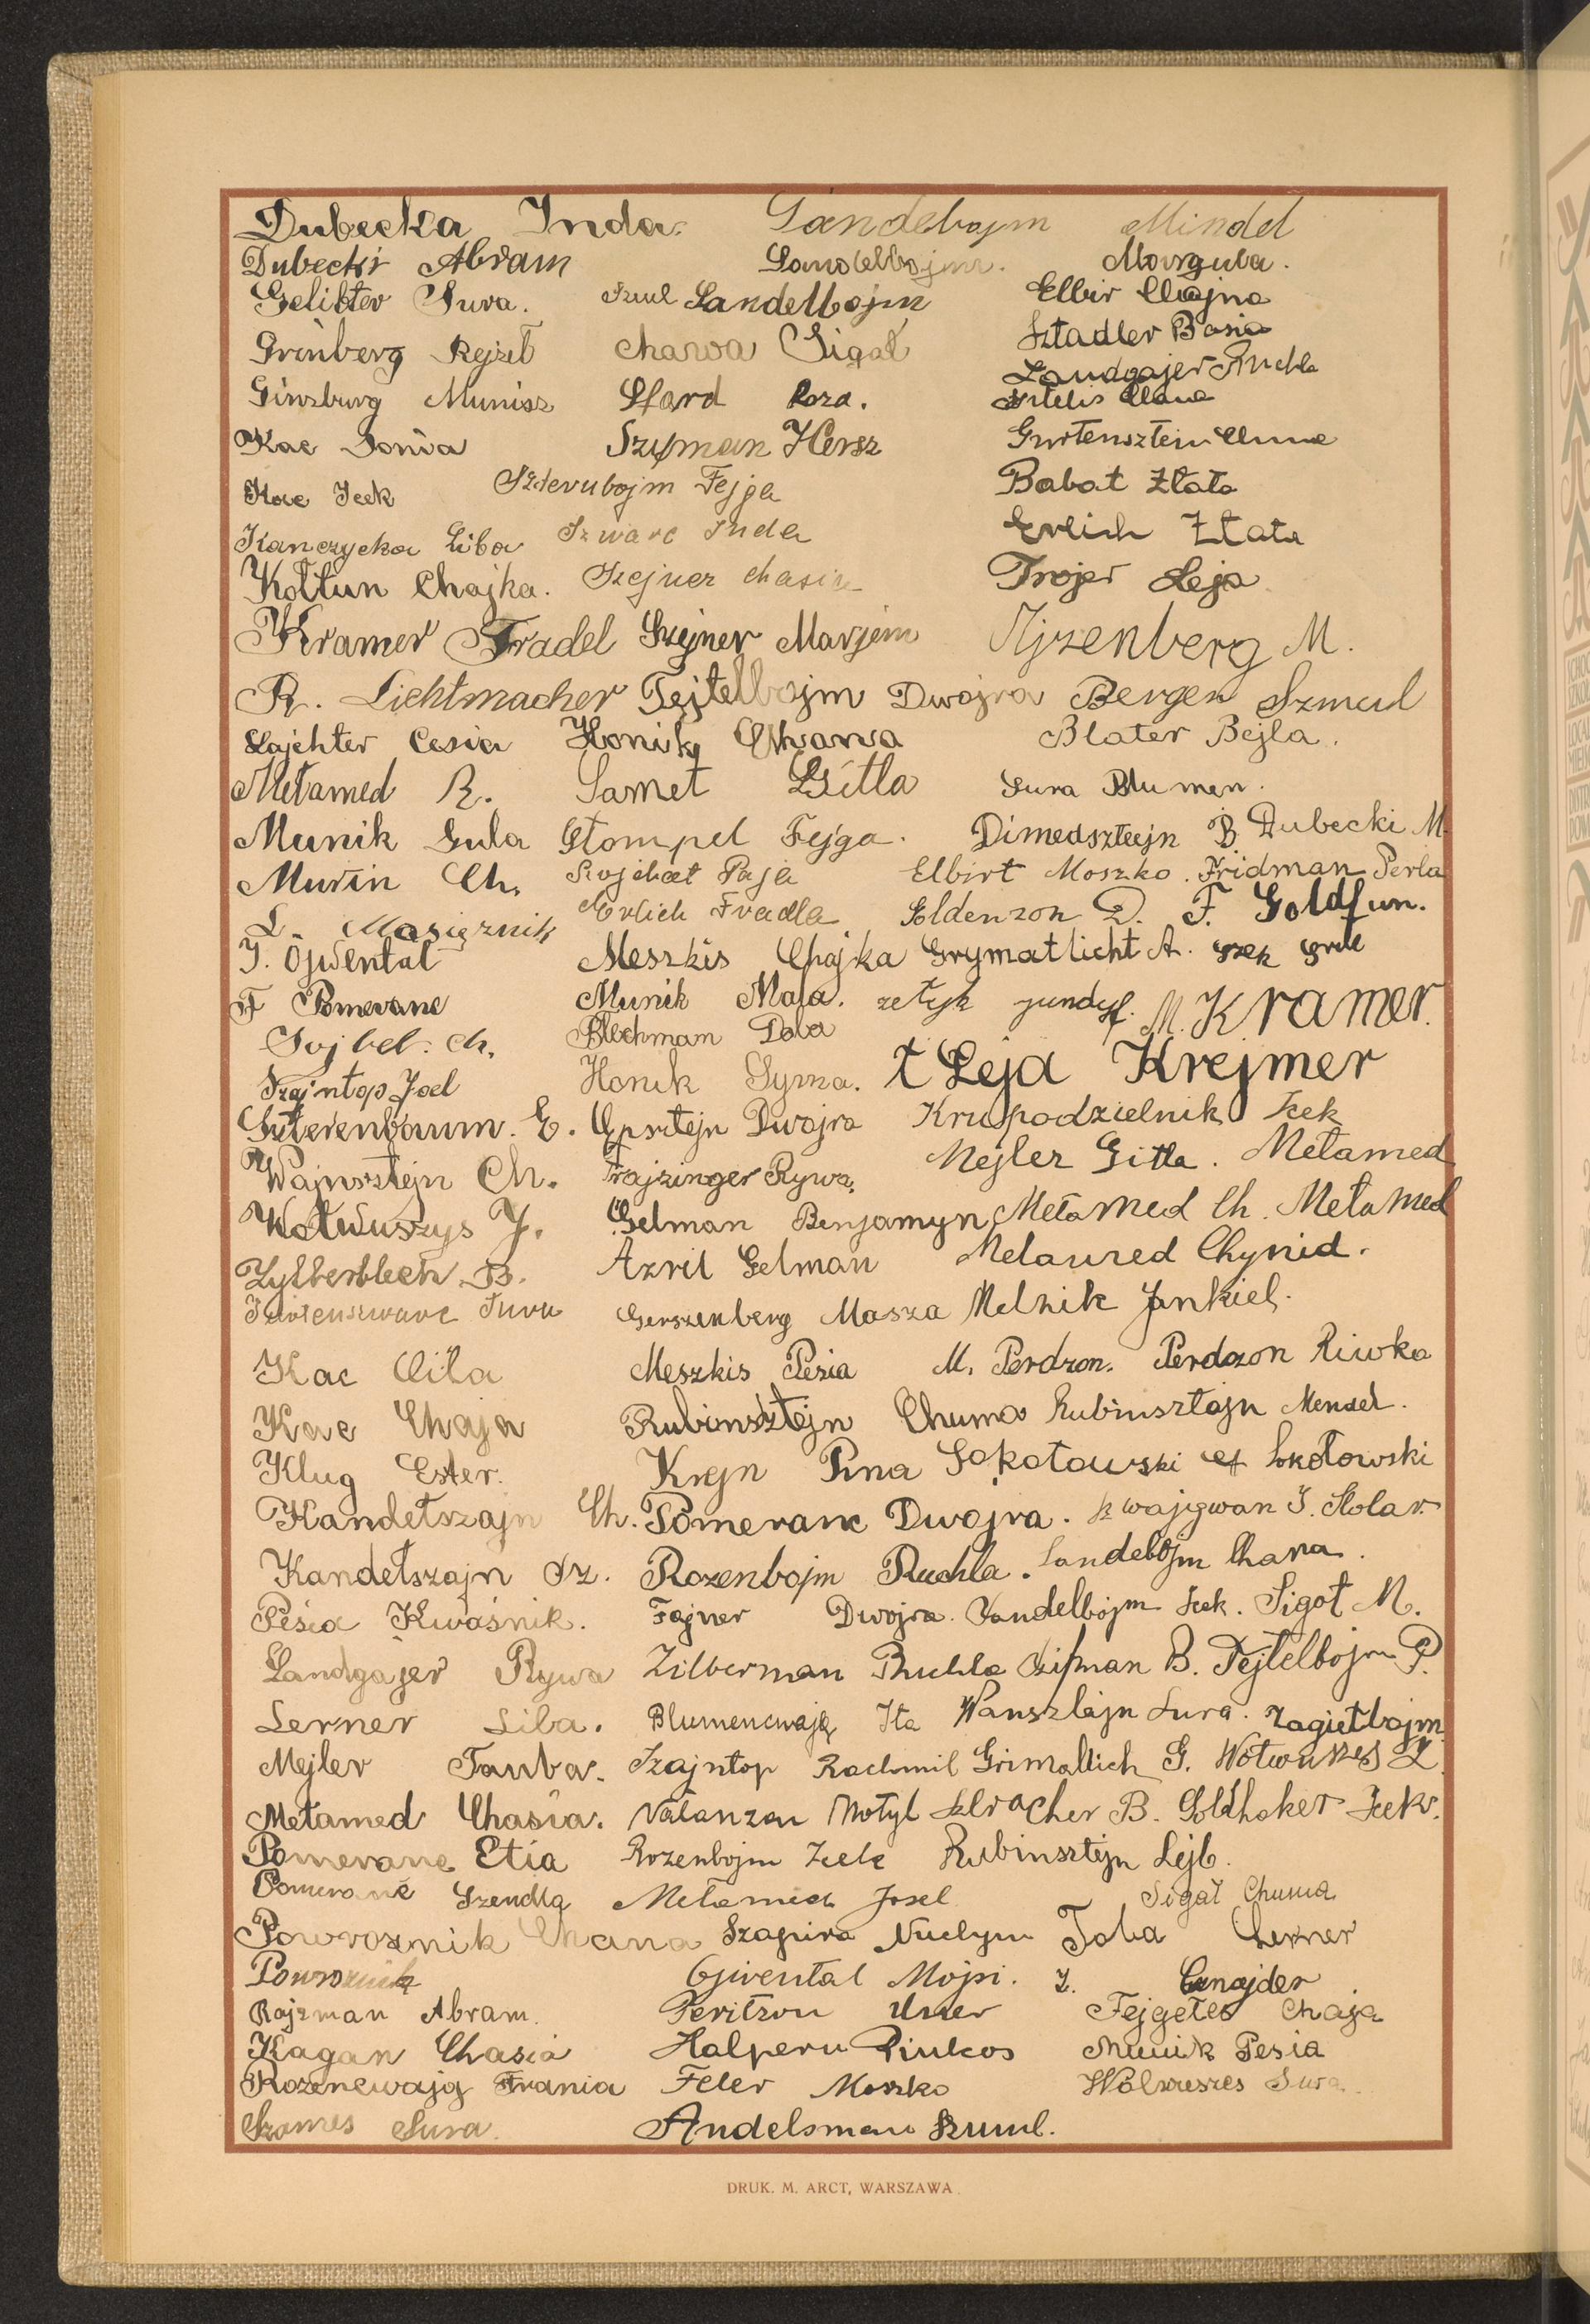 Dubecka Inda. Sandelbojm Mindel
Dubecki Abram Sandelbojm. Morguba.
Gelikter Sura. Szul Sandelbojm Elbir Chajna
Grinberg Rejzel Chawa Sigał Sztadler Basia
Ginzburg Munisz Sfard Roza. Landgajer Ruchla
Kac Sonia Szyfman Hersz Gurtensztein
Kac Icek Szterubojm Fejga Babat Złata
Kanczycka Liba Szwarc Inda Erlich Złata
Kołtun Chajka. Szejner Chasia Trojer Leja
Kramer Fradel Szejner Marjem Ajzenberg M.
R. Lichtmacher Tejtelbojm Dwojra Bergen Szmul
Lajchter Cesia Honik Chawa Blater Bejla.
Mełamed R. Samet Gitla Sura Blumen.
Munik Gula Stompel Fejga. Dimedsztejn B. Dubecki M.
Murin Ch. Paja Elbirt Moszko. Fridman Perla
L. Masięznik Erlich Fradla Goldenzon D. F. Goldfun.
J. Ojwentał Meszkis Chajka Grymatlicht A.
F Pomeranc Munik Mała. M. Kramer.
Sojbel. Ch. Blechman Doba
Szajntop Joel Honik Syma. Leja Krejmer
Szterenbaum. E. Epsztejn Dwojra Krupodzielnik Icek
Wajnsztejn Ch. Frajzinger Rywa. Mejler Gitla. Mełamed
Wołwuszys J. Gelman Benjamyn Mełamed Ch. Mełamed
Zylberblech B. Azril Gelman Melamed Chynid.
Sura Gerszenberg Masza Melnik Jankiel.
Kac Cila Meszkis Pesia M. Perdzon. Perdzon Riwka
Kac Chaja Rubinsztejn Chuma Rubinsztajn Mendel.
Klug Ester. Krejn Pina Sokołowski Sokołowski
Kandełszajn Ch. Pomeranc Dwojra. J. Stolar.
Kandełszajn Sz. Rozenbojm Ruchla. Sandelbojm Chana.
Pesia Kwaśnik. Fajner Dwojra. Sandelbojm Icek. Sigoł M.
Landgajer Rywa Zilberman Ruchla Szifman B. Tejtelbojm P.
Lerner Liba. Blumencwajg Ita Wansztajn Sura. Zagielbojm
Mejler Tauba. Szajntop Rachmil Grimallich G. Wołwuszes L.
Mełamed Chasia. Natanzon Motyl B. Goldhaker Icek.
Pomeranc Etia Rozenbojm Icek Rubinsztejn Lejb.
Pomeranc Szendla Mełamed Josel Sigał Chuma
Powroznik Chana Szapira Nuchym Toba Lerner
Powroznik Ojwental Mojsi. J. Cznajder
Rojzman Abram. Peritzon Uszer Fejgełes Chaja
Kagan Chasia Halpern Pinkos Munik Pesia
Rozencwajg Frania Feler Moszko Sura
Szames Sura. Andelsman Szmul.
DRUK. M. ARCT, WARSZAWA.